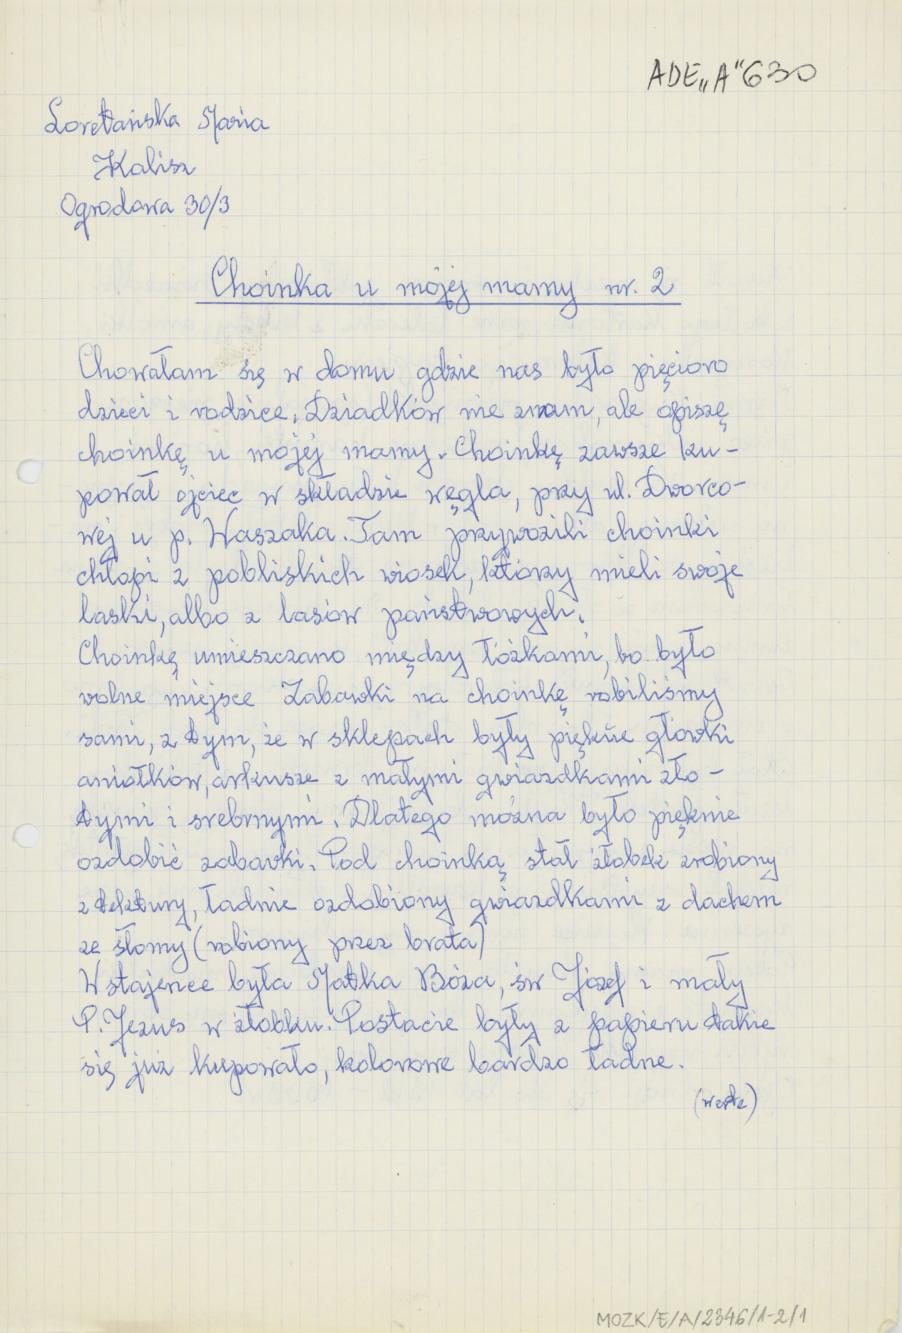 ADE „A" 630
Loretańska Maria
Kalisz
Ogrodowa 30/3
Choinka u mójej mamy nr. 2
Chowałam się w domu gdzie nas było pięcioro
dzieci i rodzice. Dziadków nie znam, ale ópiszę
choinkę u mójej mamy. Choinkę zawsze ku-
pował ójciec w składzie węgla, przy ul. Dworco-
wej u p. Waszaka. Tam przywozili choinki
chłopi z pobliskich wiosek, którzy mieli swoje
laski, albo z lasów państwowych.
Choinkę umieszczano między łóżkami, bo było
wolne miejsce Zabawki na choinkę robiliśmy
sami, z tym, że w sklepach były piękne główki
aniołków, arkusze z małymi gwiazdkami zło-
tymi i srebrnymi. Dlatego można było pięknie
ozdobić zabawki. Pod choinką stał żłobek zrobiony
z tektury, ładnie ozdobiony gwiazdkami z dachem
ze słomy (robiony przez brata)
W stajence była Matka Boża, św Józef i mały
P. Jezus w żłobku. Postacie były z papieru takie
się już kupowało, kolorowe bardzo ładne.
(verte)
MOZK/E/A/2346/1-2/1